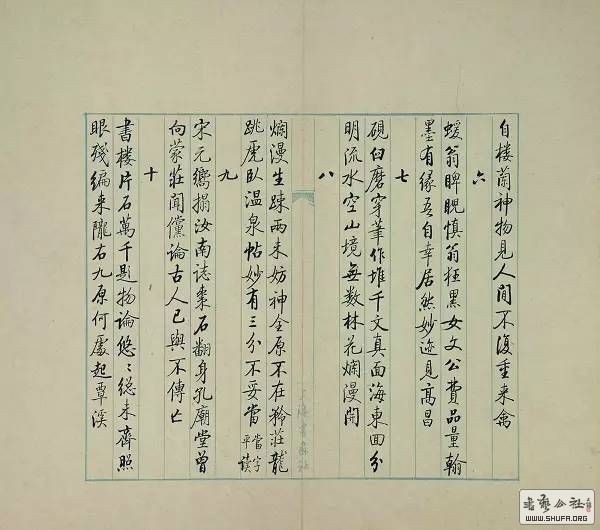 自楼蘭神物見人間不復重来禽
六
蝯翁睥睨慎翁狂黑女文公費品量翰
墨有緣吾自幸居然妙迹見高昌
七
硯臼磨穿筆作堆千文真面海東回分
明流水空山境無數林花爛漫開
八
爛漫生疎兩未妨神全原不在矜莊龍
跳虎臥温泉帖妙有三分不妥當當字
平讀
九
宋元嚮搨汝南誌棗石翻身孔廟堂曾
向蒙莊聞儻論古人已與不傳亡
十
書楼片石萬千題物論悠〻總未齊照
眼殘編来隴右九原何處起覃溪
书艺公社
WWW.SHUFA.ORG